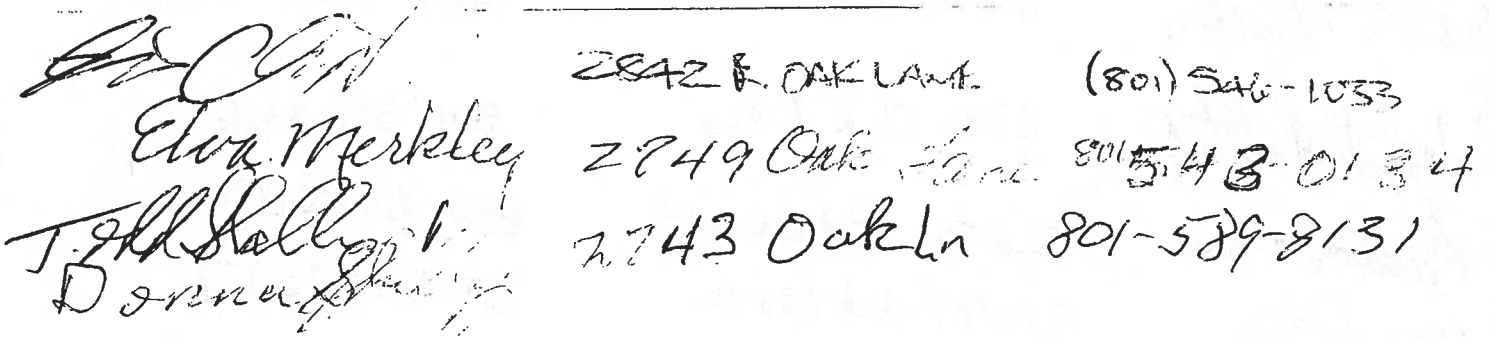 2842 E. OAK LANE (801) 546-1033
Elva Merkley 2749 Oak Lane 801 543-0134
Todd 2743 Oak Ln 801-589-8131
Donna